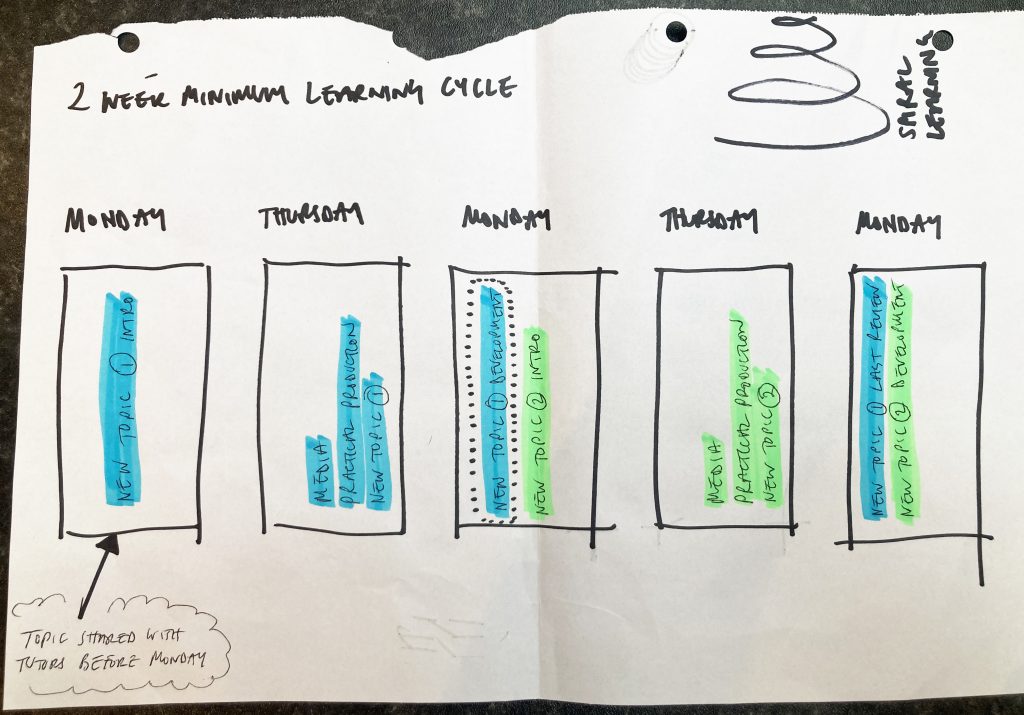 2 WEEK MINIMUM LEARNING CYCLE
SARAL
LEARNING
MONDAY
THURSDAY
MONDAY
THURSDAY
MONDAY
NEW TOPIC 1 INTRO
MEDIA
PRACTICAL PRODUCTION
NEW TOPIC 1
NEW TOPIC 1 DEVELOPMENT
NEW TOPIC 2 INTRO
MEDIA
PRACTICAL PRODUCTION
NEW TOPIC 2
NEW TOPIC 1 LAST REVIEW
NEW TOPIC 2 DEVELOPMENT
TOPIC SHARED WITH
TUTORS BEFORE MONDAY